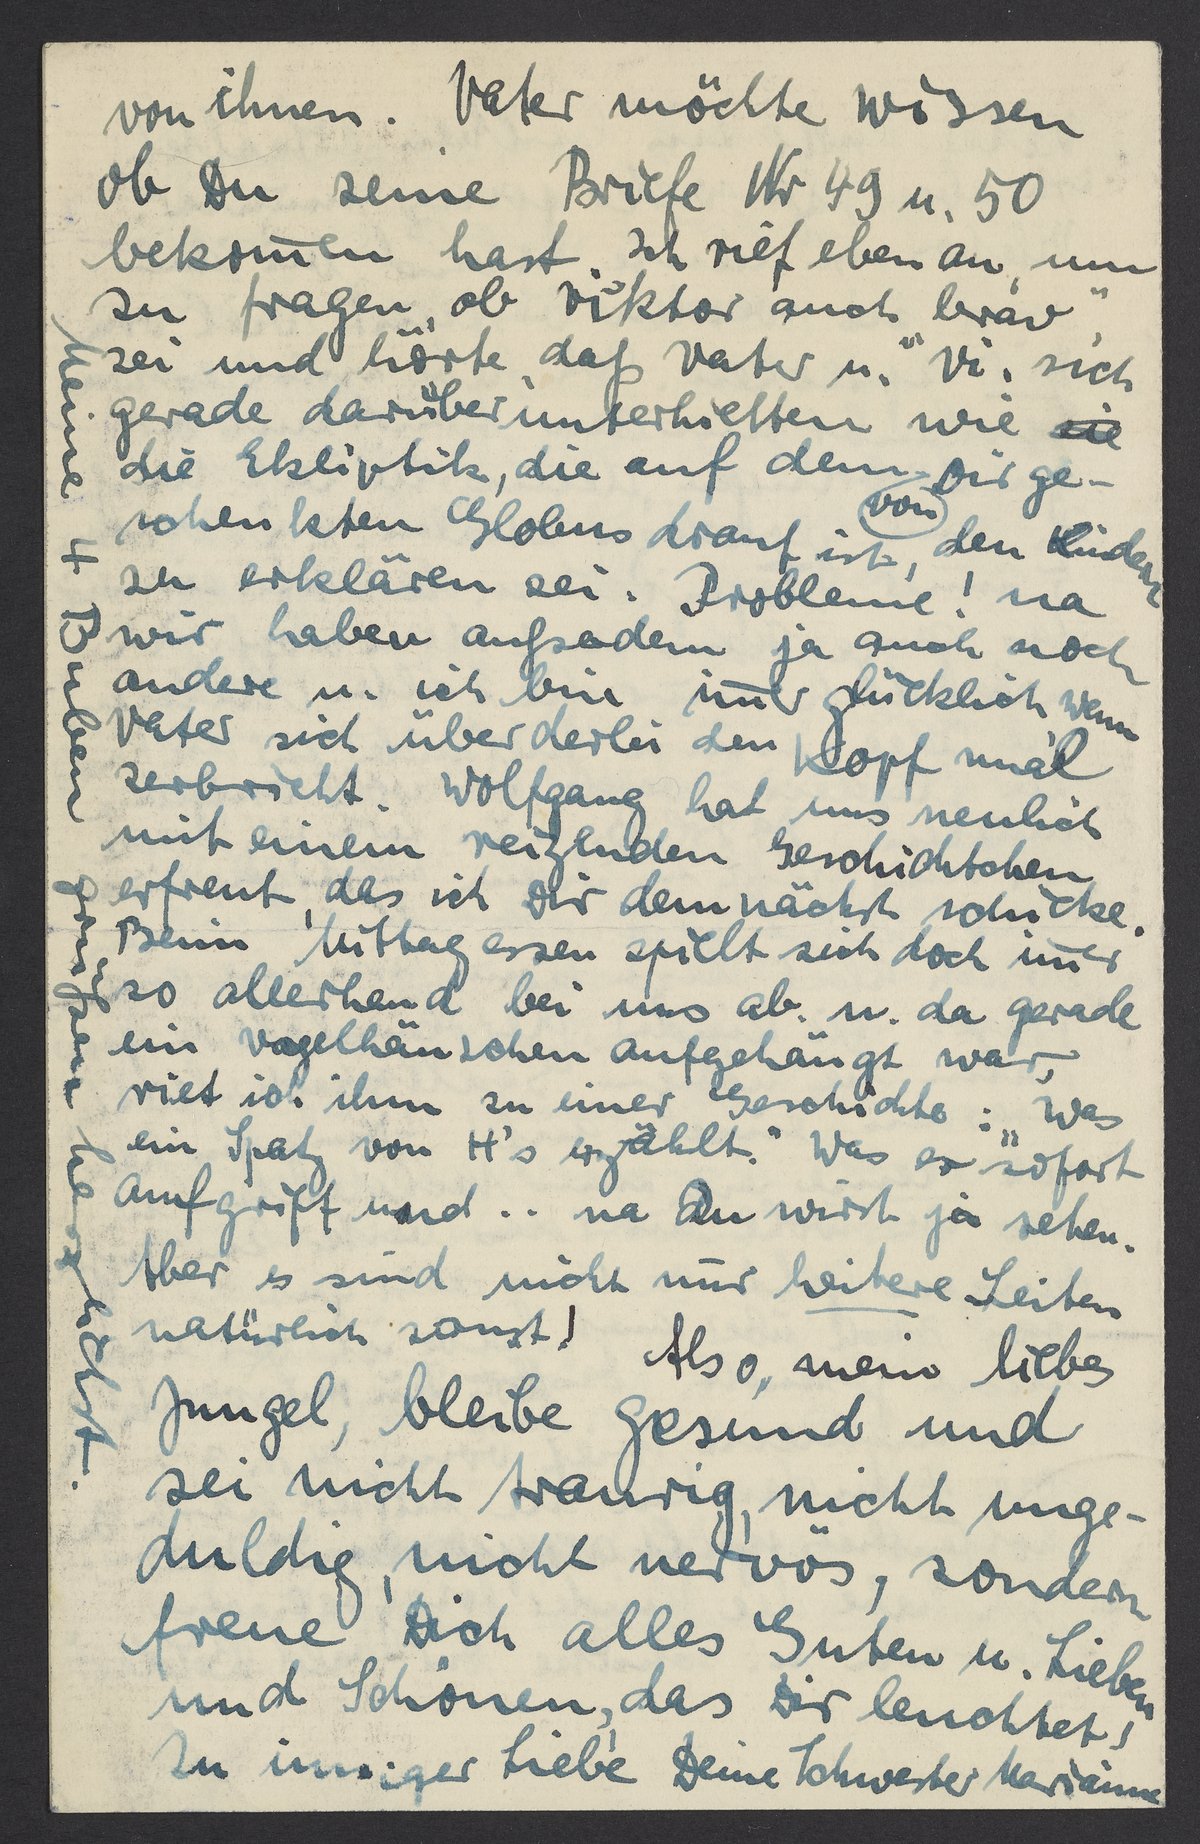 von ihnen. Vater möchte wissen
ob Du seine Briefe Nr 49 u. 50
bekom̄en hast. Ich rief eben an, um
zu fragen, ob Viktor auch „brav"
sei und hörte, daß Vater u. Vi. sich
gerade darüber unterhielten wie sie
die Ekliptik, die auf dem Dir ge-
schenkten Globus drauf ist, von den Kindern
zu erklären sei. Probleme! na
wir haben außedem ja auch noch
andere u. ich bin im̄er glücklich, wenn
Vater sich über derlei den Kopf mal
zerbricht. Wolfgang hat uns neulich
mit einem reizenden Geschichtchen
erfreut, das ich Dir demnächst schicke.
Beim Mittagessen spielt sich doch im̄er
so allerhand bei uns ab. u. da gerade
ein Vogelhäuschen aufgehängt war,
riet ich ihm zu einer Geschichte: „Was
ein Spatz von H's erzählt." Was er sofort
aufgriff und .. na Du wirst ja sehen.
Aber es sind nicht nur heitere Zeiten
natürlich sonst! Also, mein liebes
Jungel, bleibe gesund und
sei nicht traurig, nicht unge-
duldig, nicht nervös, sondern
freue Dich alles Guten u. Lieben
und Schönen, das Dir leuchtet!
In inniger Liebe Deine Schwester Marianne
Meine 4 Buben grüßen herzlichst.